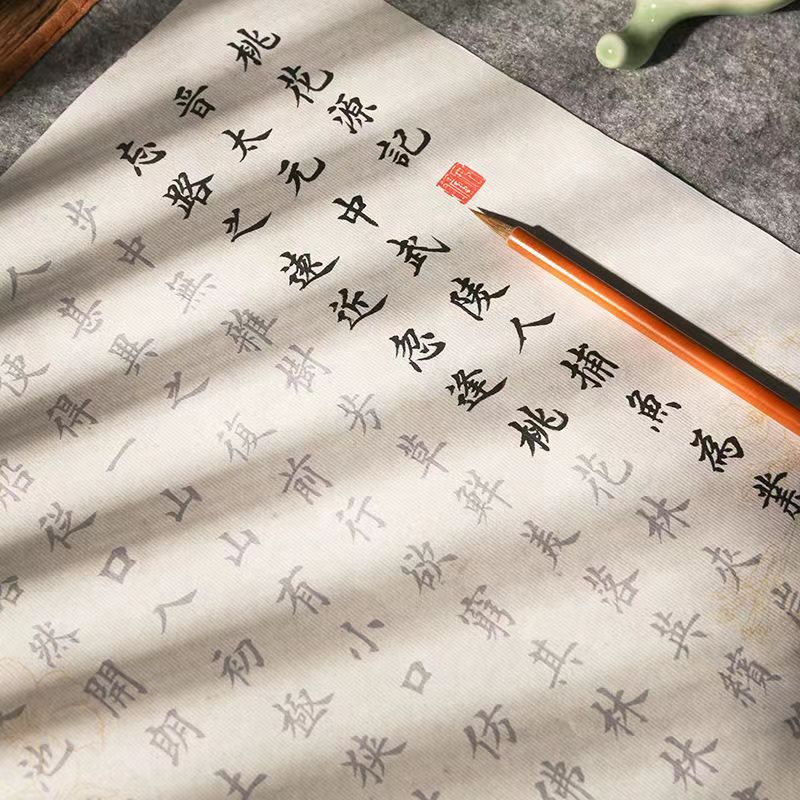 桃花源記
晋太元中武陵人捕魚為業
忘路之遠近忽逢桃花林夾岸
步中無雜樹芳草鮮美落英繽
人甚異之復前行欲窮其林林
便得一山山有小口仿佛
船從口入初極狹
然開朗土
池